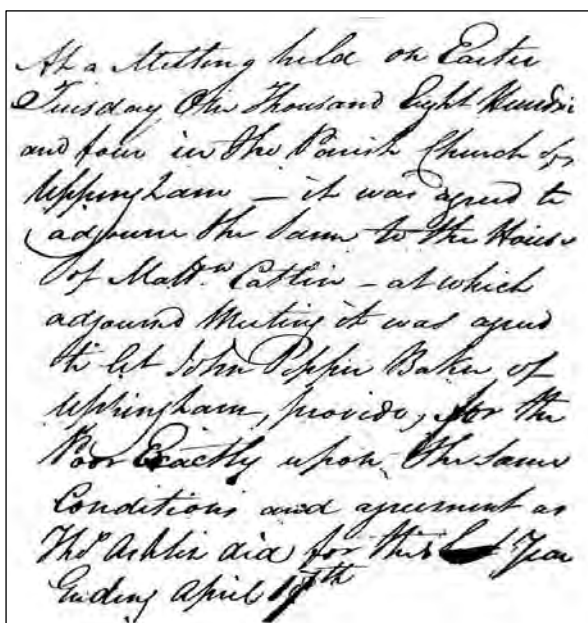 At a Meeting held on Easter
Tuesday One Thousand Eight Hundre
and four in the Parish Church of
Uppingham — it was agreed to
adjourn the same to the House
of Mattw. Catlin – at which
adjournd Meeting it was agreed
to let John Pepper Baker of
Uppingham, provide, for the
Poor Exactly upon the same
Conditions and agreement as
Thos Ashlin did for the Year
Ending April